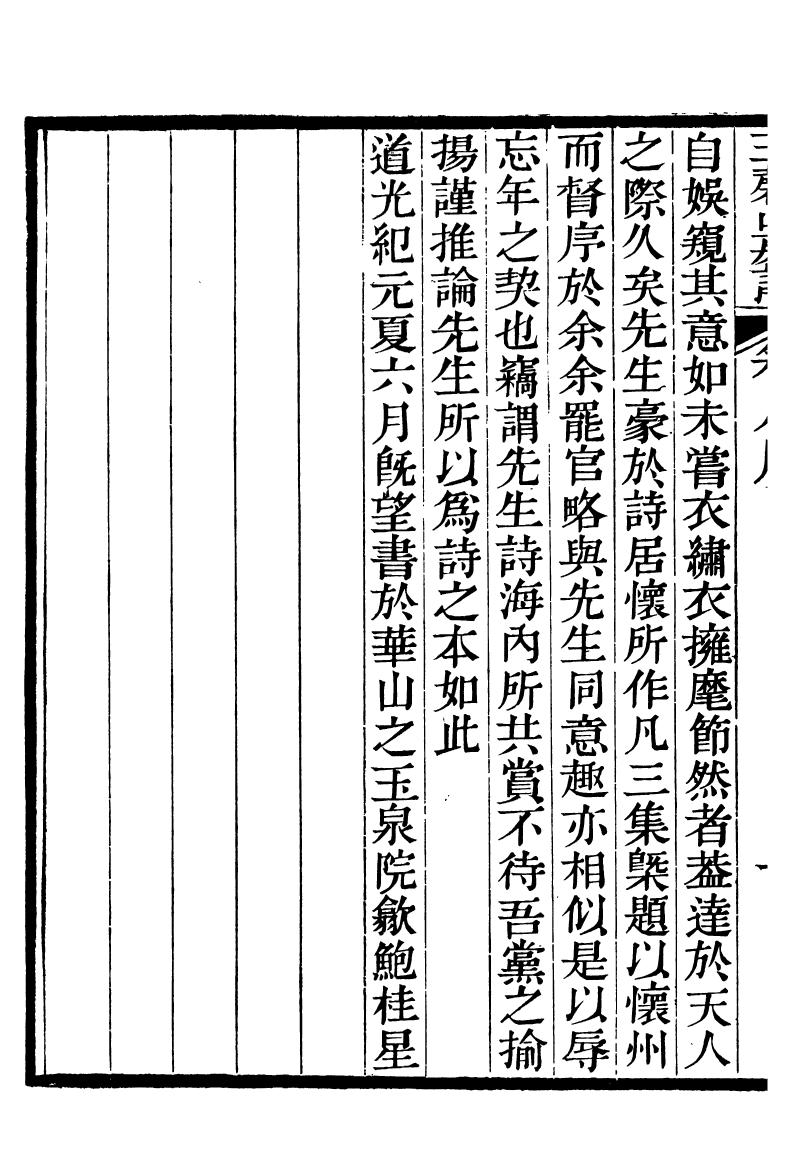 自娛窺其意如未嘗衣繡衣擁麾節然者葢達於天人
之際久矣先生豪於詩居懷所作凡三集槩題以懷州
而督序於余余罷官略與先生同意趣亦相似是以辱
忘年之契也竊謂先生詩海內所共賞不待吾黨之揄
揚謹推論先生所以爲詩之本如此
道光紀元夏六月旣望書於華山之玉泉院歙鮑桂星